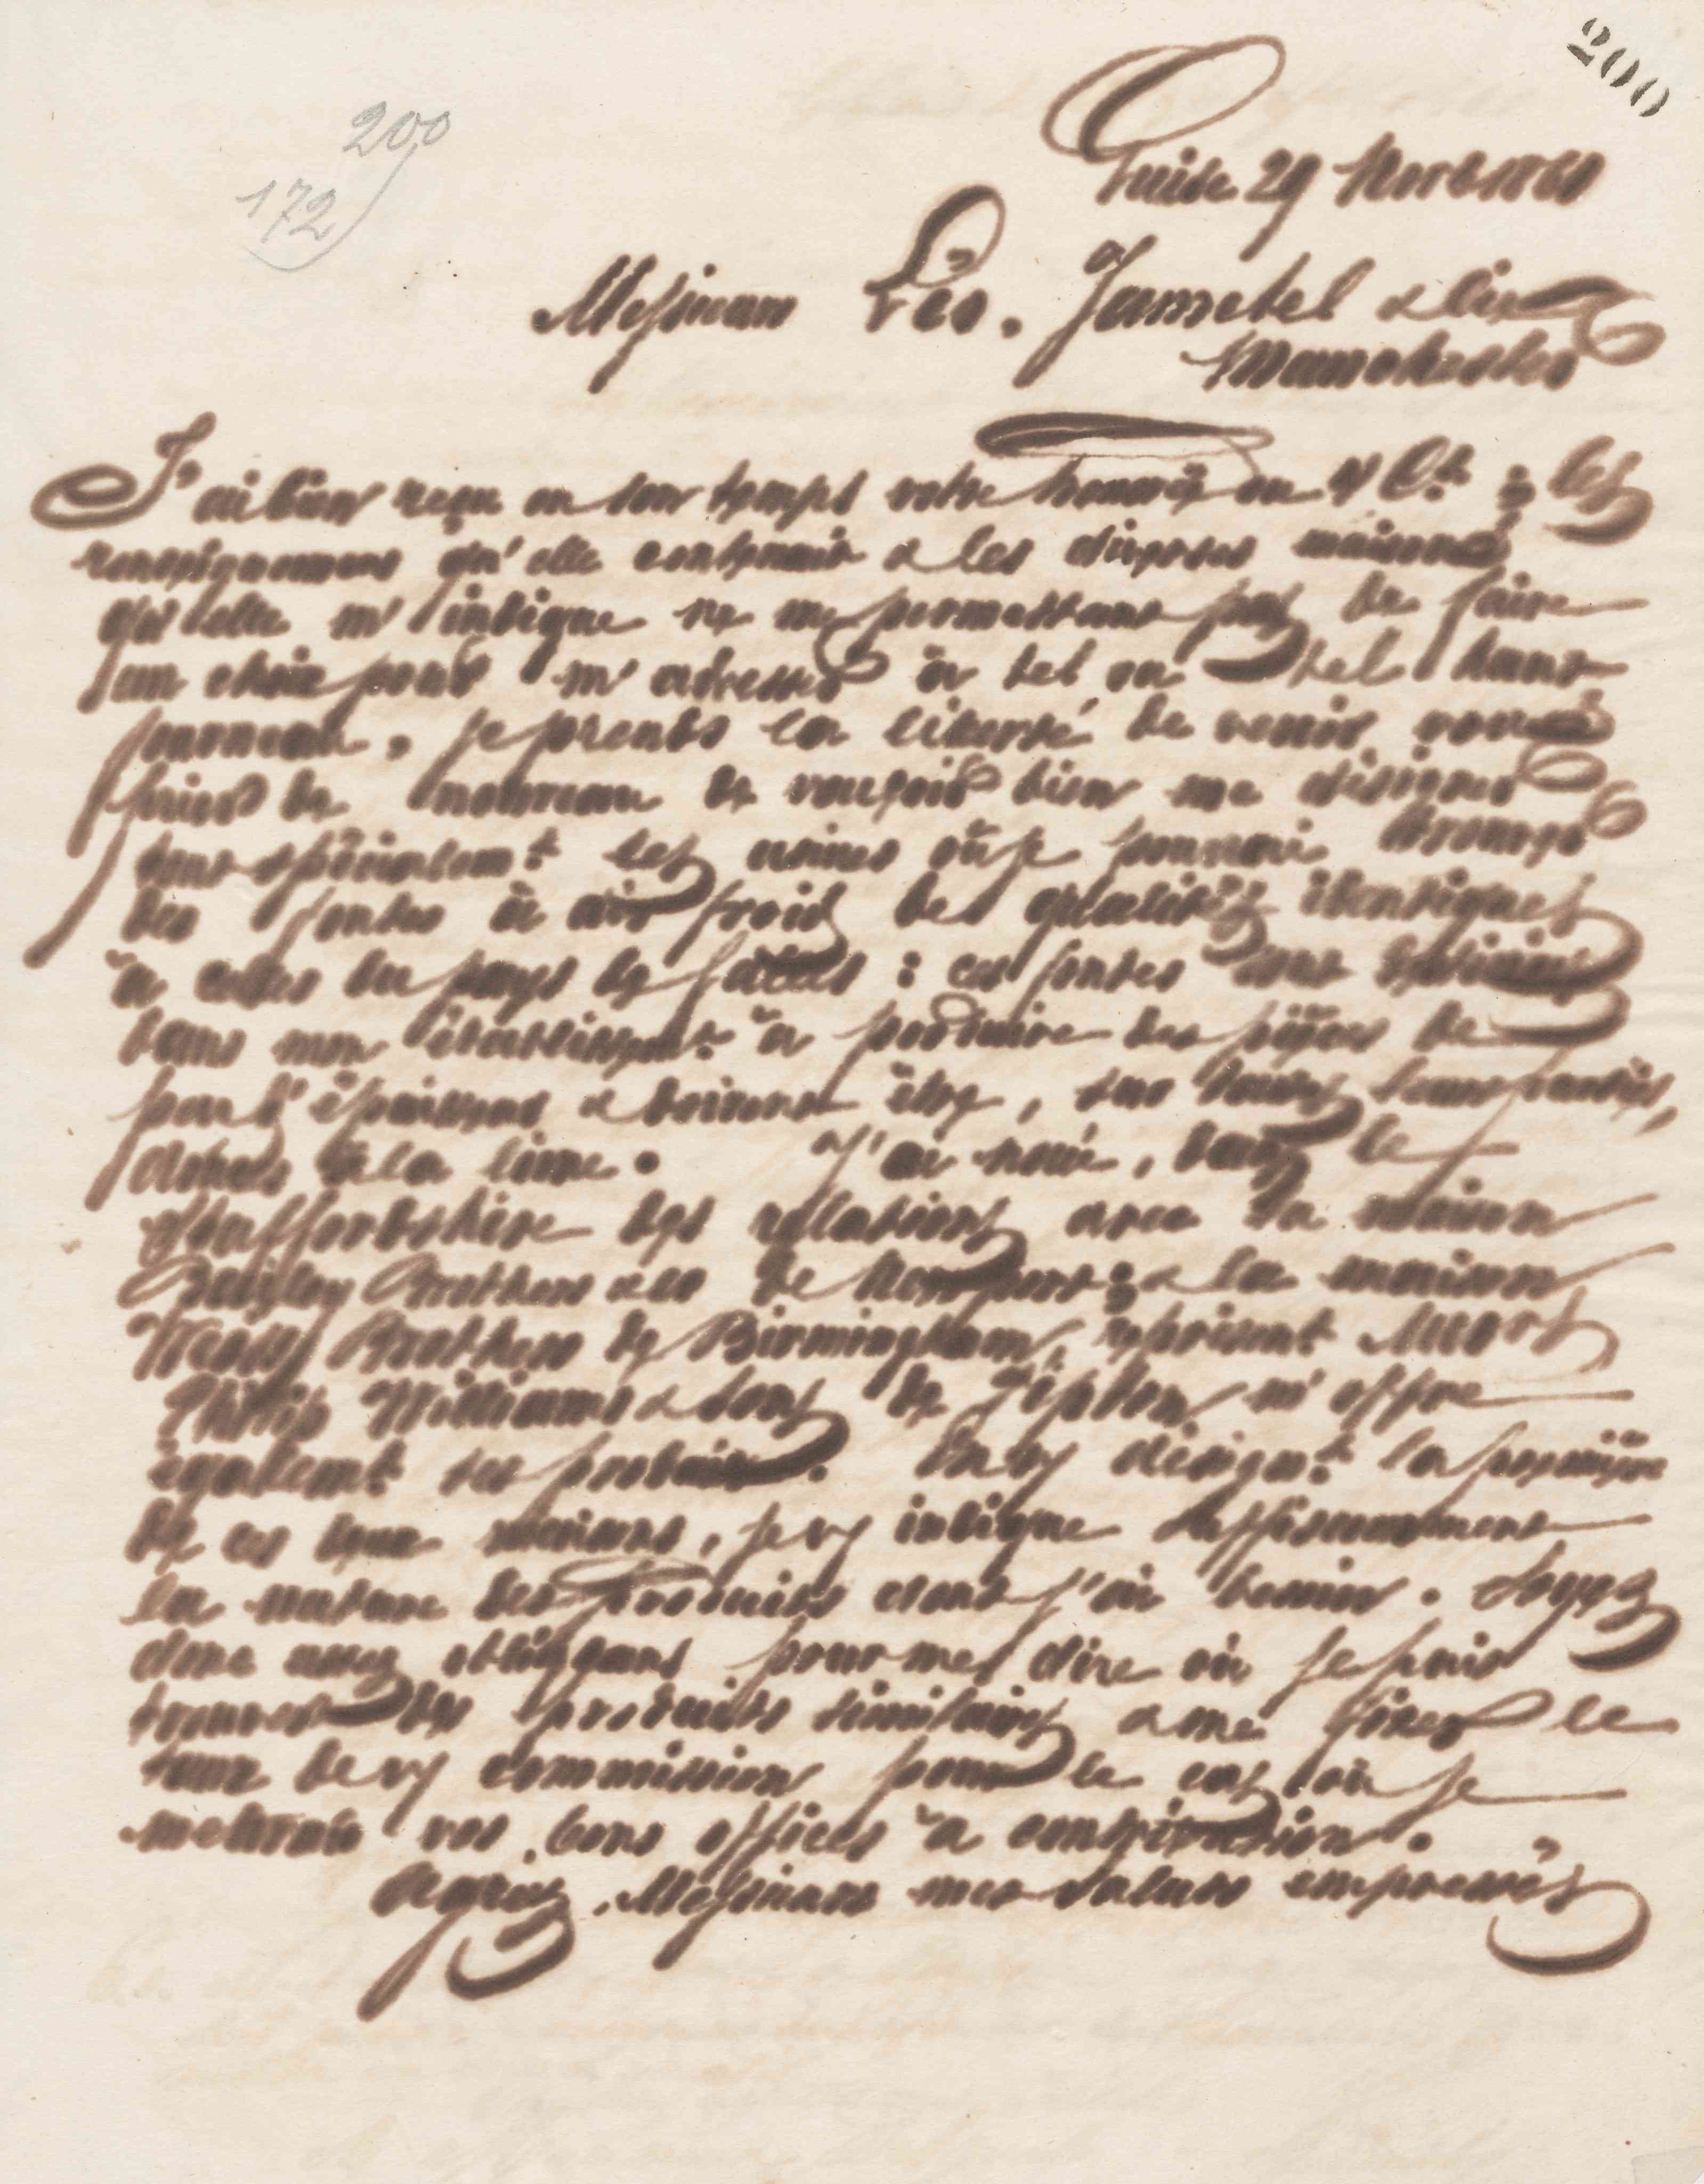 200
200
172
Guise 29 Novb 1861
Messieurs Léo. Jametel & Cie
Manchester
J'ai bien reçu en son temps votre honorée du Ct : les
renseignemens qu'elle contenait & les diverses maisons
qu'elle m'indique ne me permettant pas de faire
un choix pour m'adresser à tel ou tel haut
fourneau, je prends la liberté de venir vous
prier de nouveau de vouloir bien me désigner
tout spécialemt les usines où je pourrai trouver
des fontes à air froid de qualités identiques
à celles du pays de Galles : ces fontes sont
dans mon établissemt à produire des pièces de
peu d'épaisseur & doivent être, sur toutes leurs parties,
douces à la lime. J'ai noué, dans le
Staffordshire des relations avec la maison
Brothers & Co de Newport : & la maison
Brothers de Birmingham, représent Mess
Philip Williams & Sons de Tipton m'offre
égalemt ses produits. En vs désignt la première
de ces deux maisons, je vs indique suffisamment
la nature des produits dont j'ai besoin. Soyez
donc assez obligeans pour me dire où je puis
trouver des produits similaires & me fixer le
taux de vs commission pour le cas où je
mettrais vos bons offices à contribution.
Agréez, Messieurs mes saluts empressés